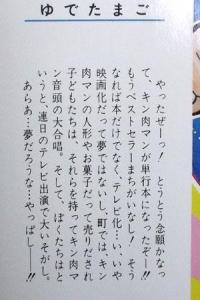 ゆでたまご
やったぜーっ! とうとう念願かなっ
て、キン肉マンが単行本になったぞ!!
もうベストセラーまちがいなし! そう
なれば本だけでなく、テレビ化…、いや
映画化だって夢ではないし、町ではキン
肉マンの人形やお菓子だって売りだされ
子どもたちは、それらを片手にキン肉マ
ン音頭の大合唱。そして、ぼくたちはと
いうと、連日のテレビ出演で大いそがし。
あらあ…夢だろうな…やっぱしー!!